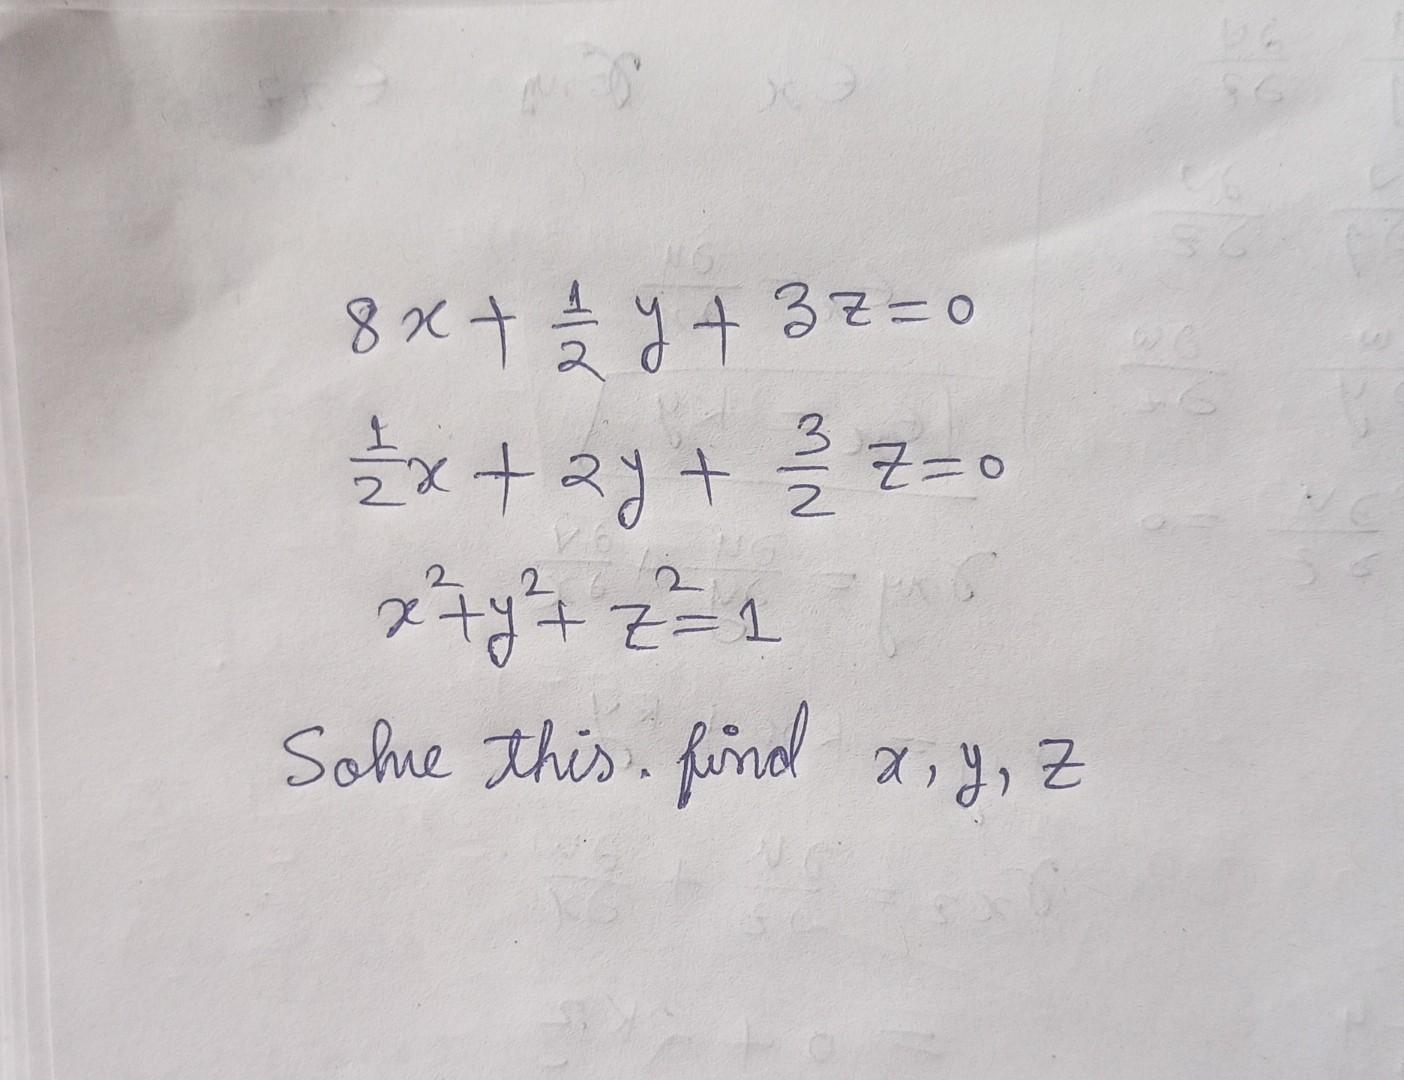 8x + 1/2 y + 3z = 0
1/2 x + 2y + 3/2 z = 0
x² + y² + z² = 1
Solve this. find x, y, z